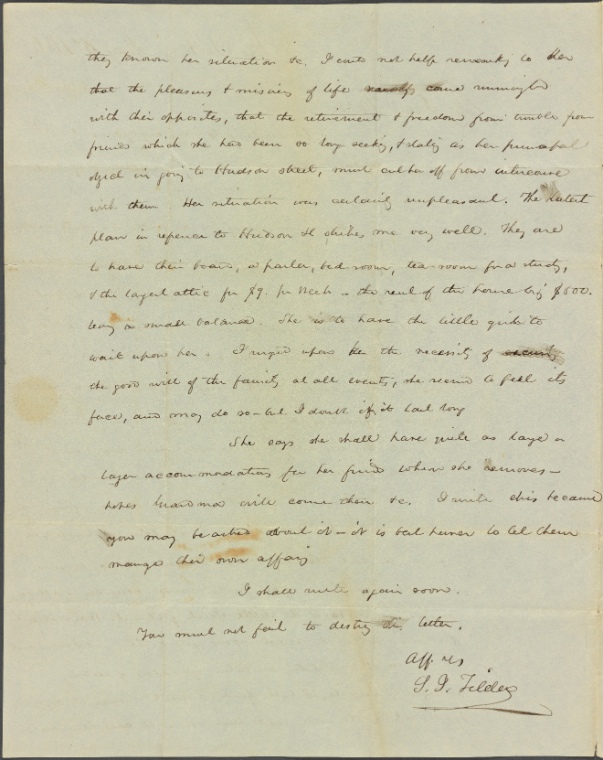 they known her situation &c. I could not help remarking to her
that the pleasures & miseries of life come mingled
with their opposites, that the retirement & freedom from trouble from
friends which she has been so long seeking, & stating as her principal
object in going to Hudson street, must cut her off from intercourse
with them Her situation was certainly unpleasant. The latest
plan in reference to Hudson St strikes me very well. They are
to have their board, a parlor, bed room, tea room for a study,
& the largest attic for $9. per Week – the rent of the house being $500.
leaving a small balance. She is to have the little girl to
wait upon her. I urged upon her the necessity of securing
the good will of the family at all events, she seemed to feel its
force, and may do so – but I doubt if it last long
She says she shall have quite as large or
larger accommodations for her friends when she removes –
hopes Grandma will come then &c. I write this because
you may be asked about it – it is best to let them
manage their own affairs
I shall write again soon.
You must not fail to destroy this letter.
Aff. yrs
S. J. Tilden